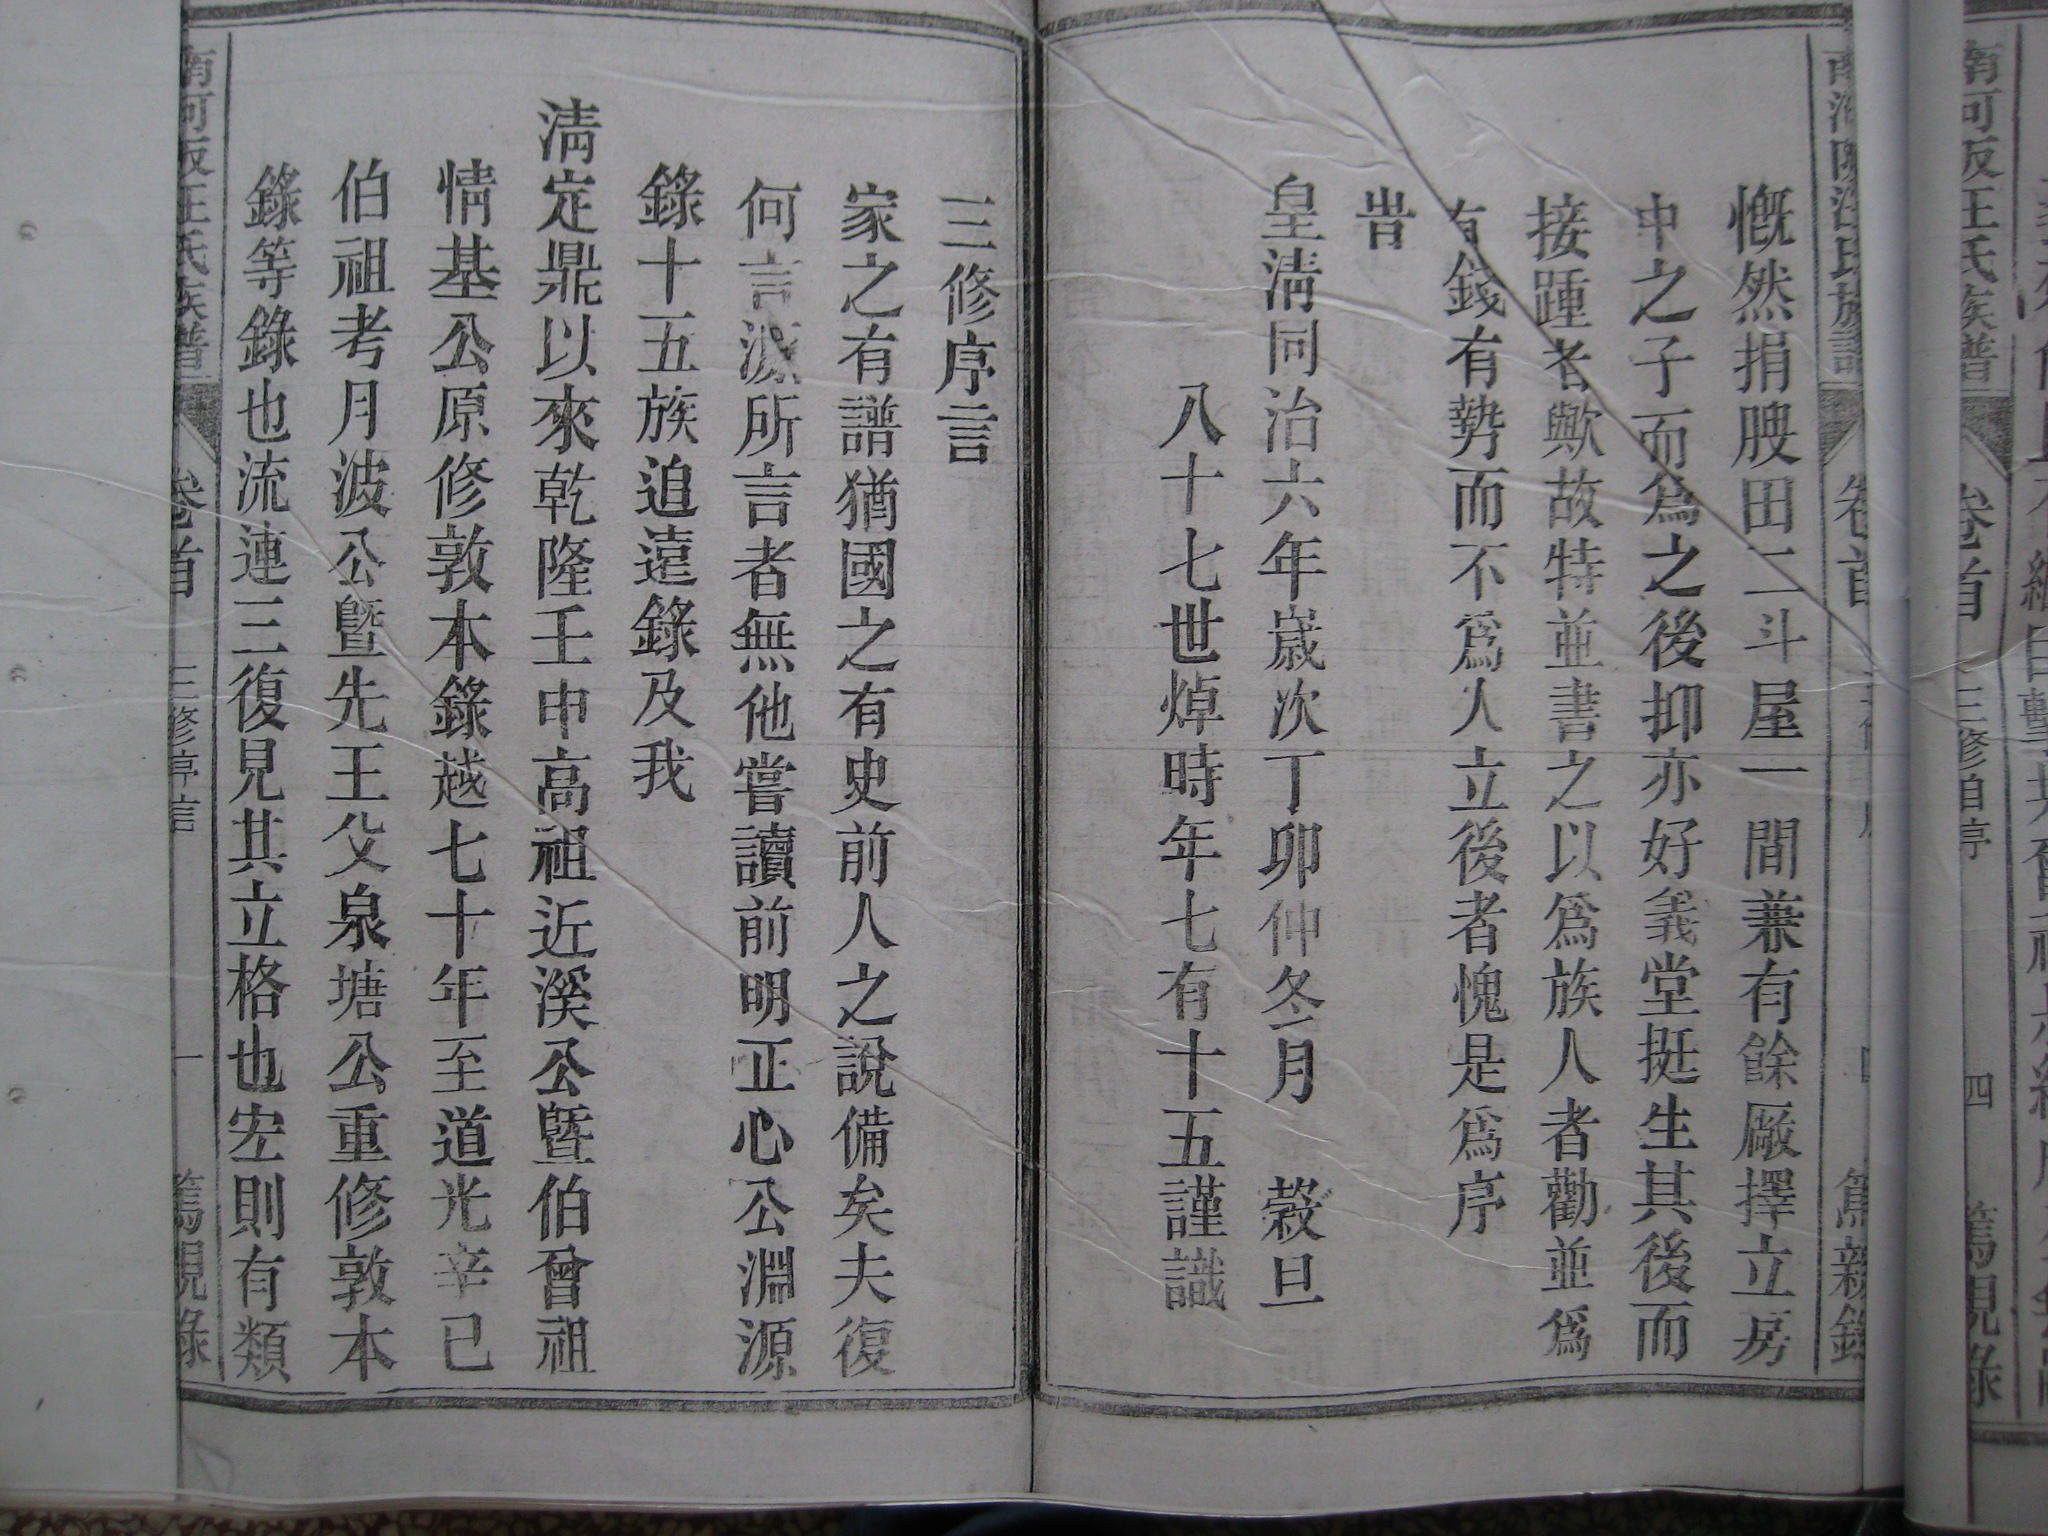 慨然捐腴田二斗屋一間兼有餘厰擇立房
中之子而爲之後抑亦好義堂挺生其後而
接踵者歟故特並書之以爲族人者勸並爲
有錢有勢而不爲人立後者愧是爲序
旹
皇淸同治六年嵗次丁卯仲冬月 榖旦
八十七世焯時年七有十五謹識
三修序言
家之有譜猶國之有史前人之說備矣夫復
何言溯所言者無他嘗讀前明正心公淵源
錄十五族追遠錄及我
淸定鼎以來乾隆壬申高祖近溪公暨伯曾祖
情基公原修敦本錄越七十年至道光辛巳
伯祖考月波公暨先王父泉塘公重修敦本
錄等錄也流連三復見其立格也宏則有類
南河坂汪氏族譜 卷首 三修序言 一 篤親錄
南河坂汪氏族譜 卷首 三修自序 四 篤親錄